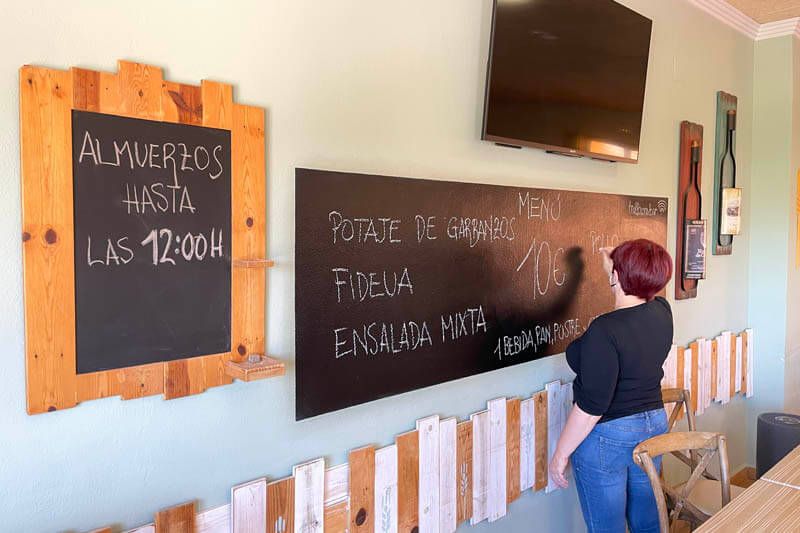 ALMUERZOS
HASTA
LAS 12:00H
MENÚ
10€
POTAJE DE GARBANZOS
FIDEUA
ENSALADA MIXTA
1 BEBIDA, PAN, POSTRE,